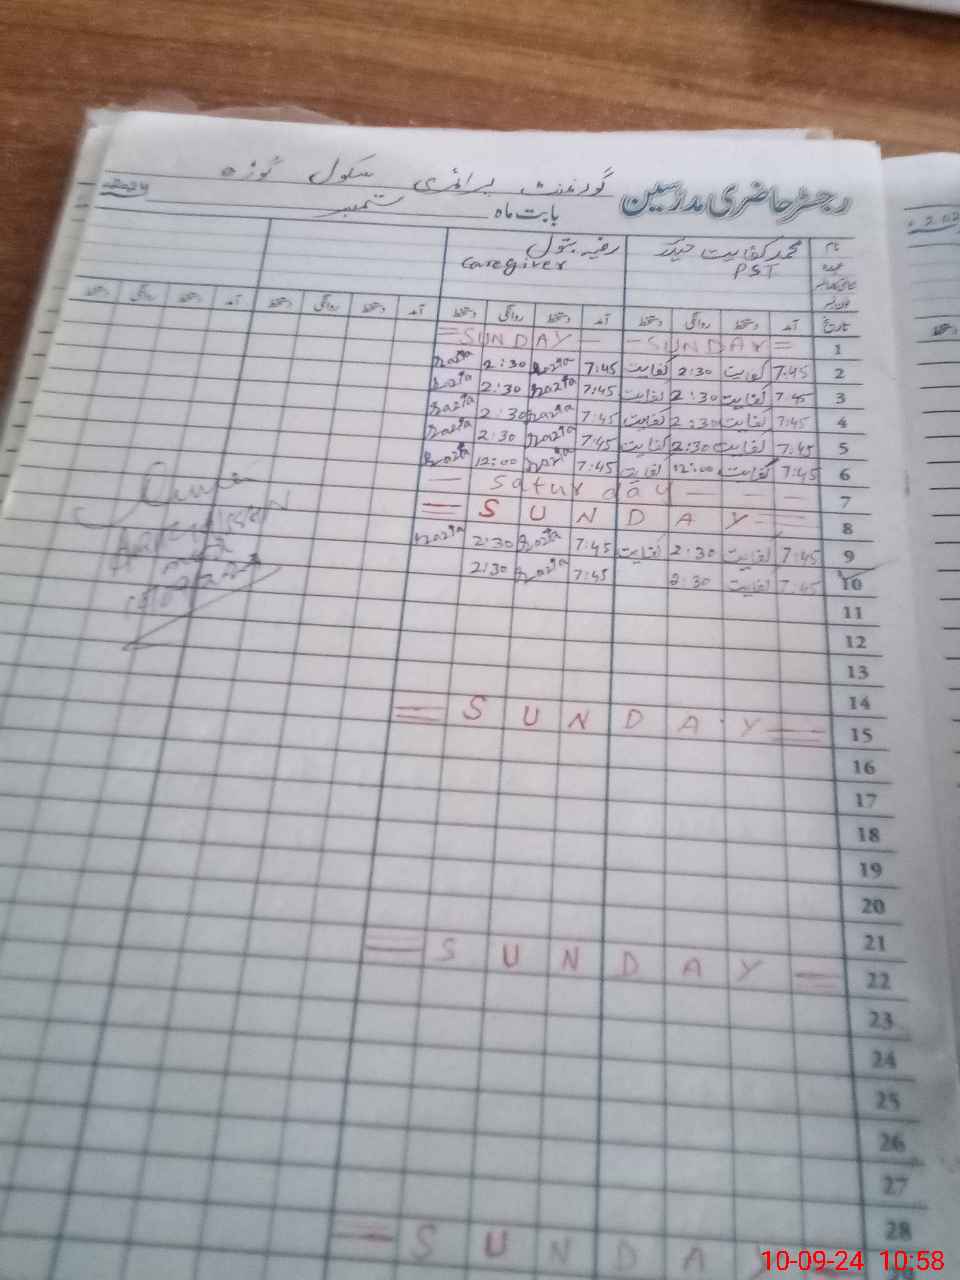 رجسٹر حاضری مدرسین گورنمنٹ پرائمری سکول
بابت ماہ ستمبر 2024
نام محمد کفایت رضیہ بتول
عہدہ PST Caregiver
تاریخ آمد دستخط روانگی دستخط آمد دستخط روانگی دستخط آمد دستخط روانگی دستخط آمد دستخط روانگی دستخط
1 = SUNDAY - - SUNDAY =
2 7:45 کفایت 2:30 کفایت 7:45 Razia 2:30 Razia
3 7:45 کفایت 2:30 کفایت 7:45 Razia 2:30 Razia
4 7:45 کفایت 2:30 کفایت 7:45 Razia 2:30 Razia
5 7:45 کفایت 2:30 کفایت 7:45 Razia 2:30 Razia
6 7:45 کفایت 12:00 کفایت 7:45 Razia 12:00 Razia
7 — Saturday — — —
8 = SUNDAY =
9 7:45 کفایت 2:30 کفایت 7:45 Razia 2:30 Razia
10 7:45 کفایت 2:30 7:45 Razia 2:30
11
12
13
14
15 = SUNDAY =
16
17
18
19
20
21
22 = SUNDAY =
23
24
25
26
27
28
= SUNDAY
10-09-24 10:58